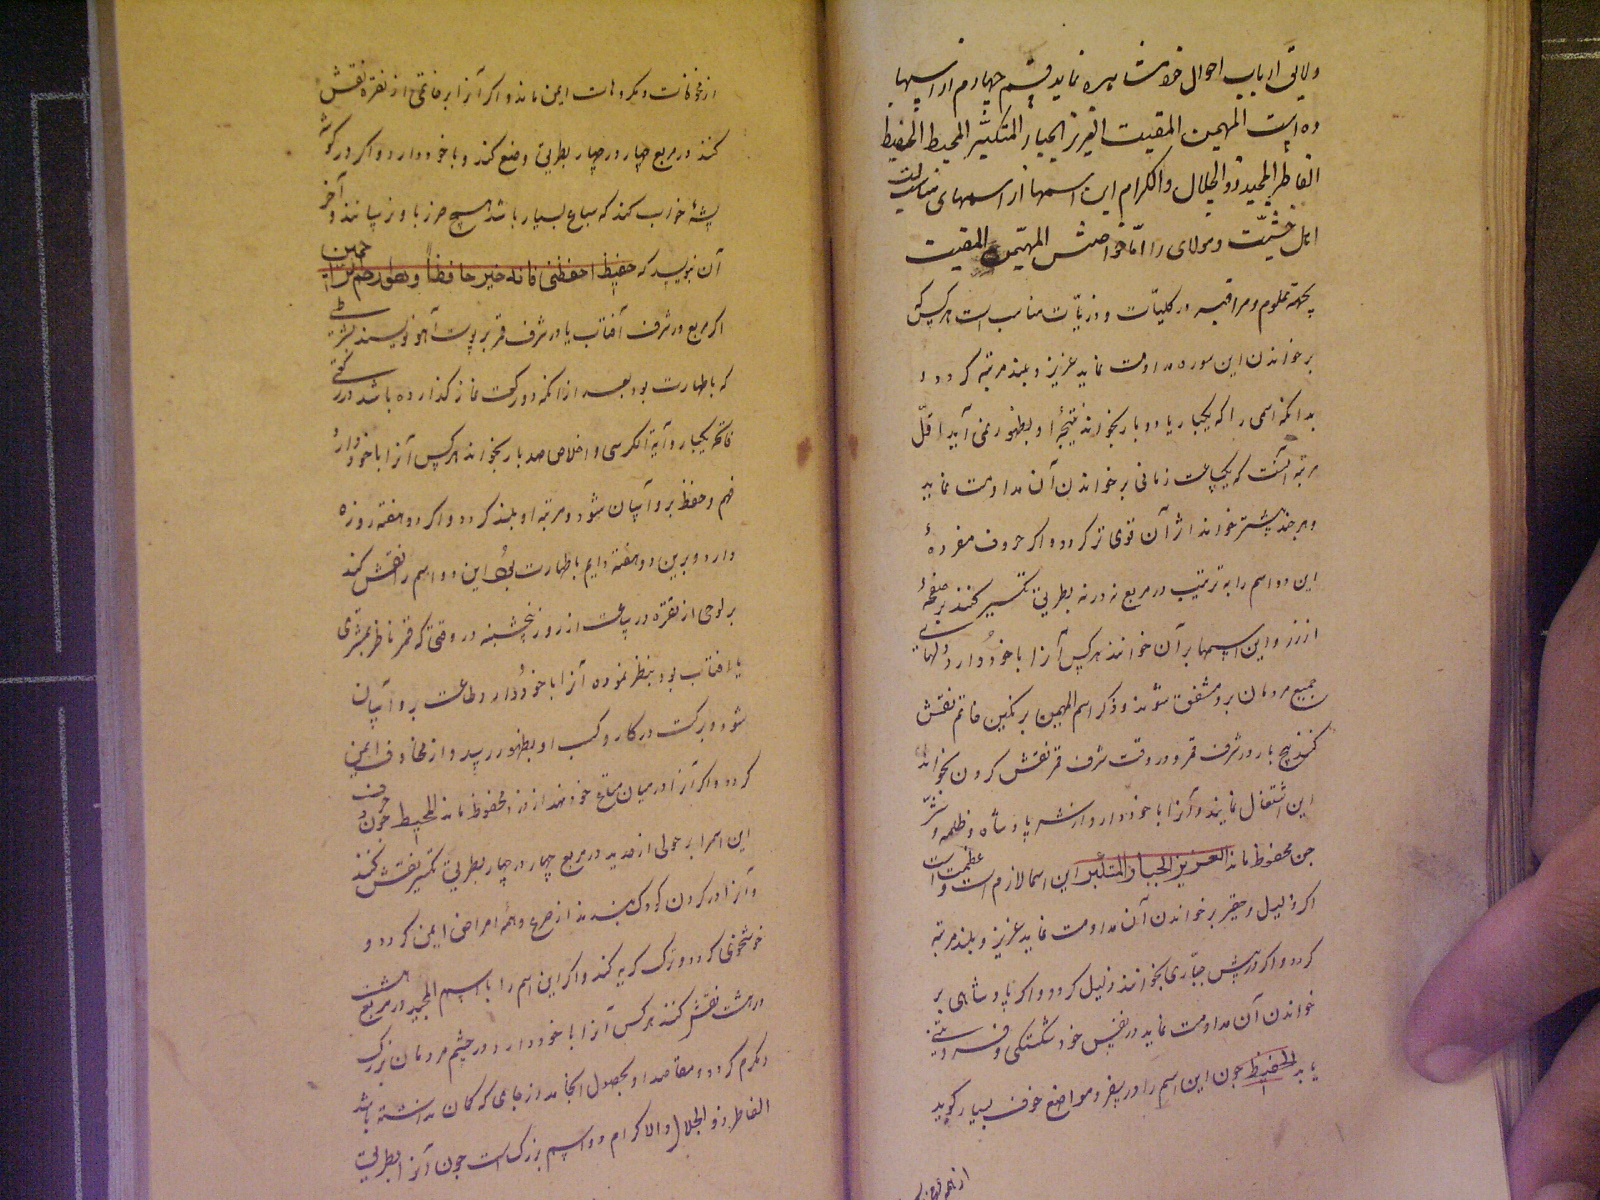 ولایق ارباب احوال خود مشاهده نماید قسم چهارم از اسمها
ده است المهیمن المقیت العزیز الجبار المتکبر المحیط الحفیظ
الفاطر المجید ذو الجلال والاکرام این اسمها از اسمهای مناسبت
اهل خشیّت و مولای را امّا خواصش المهیمن المقیت
بجهة علوم و مراقبه در کلیّات و جزئیّات مناسب است هر کس که
بر خواندن این سوره مداومت نماید عزیز و بلند مرتبه کردد و
بدانکه اسمی را که یکبار یا دو بار بخوانند نتیجهٔ او بظهور نمی آید اقلّ
مرتبه آنست که یکساعت زمانی بر خواندن آن مداومت نماید
و هر چند بیشتر خواند اثر آن قوی تر کردد و اکر حروف مفردهٔ
این دو اسم را به ترتیب در مربع نه در نه بطریق تکسیر کنند بر صفحهٔ
از زر و این اسمها بر آن خوانند هر کس آنرا با خود دارد دلهای
جمیع مردمان برو مشفق شوند و ذکر اسم المهیمن بر نکین خاتم نقش
کنند پنج بار در شرف قمر و در وقت شرف قمر نقش کردن بخواند
این اشتغال نمایند و آنرا با خود دارد از شر پادشاه و ظلمه و شرّ
جن محفوظ ماند العزیز الجبار المتکبر این اسما لازم است عظمت و
اکر ذلیل و حقیر بر خواندن آن مداومت نماید عزیز و بلند مرتبه
کردد و اکر در پیش جبّاری بخوانند ذلیل کردد و اکر پادشاهی بر
خواندن آن مداومت نماید در نفس خود شکستکی و فروتنی
یابد الحفیظ چون این اسم را در سفر و مواضع خوف بسیار کوید
از مخافات و مکروهات ایمن ماند و اکر آنرا بر خاتمی از نقره نقش
کند در مربع چهار در چهار بطریق وضع کند و با خود دارد و اکر در کوشه
بیشهٔ خواب کند که سباع بسیار باشد هیچ ضرر باو نرسانند و آخر
آن بنویسد که حفیظ احفظنی فانه خیر حافظا و هو ارحم الراحمین
اکر مربع در شرف آفتاب یا در شرف قمر بر پوست آهو نویسند بشرطی
که باطهارت بود بعد از آنکه دو رکعت نماز کذارده باشد در رکعتی
فاتحه یکبار و آیة الکرسی و اخلاص صد بار بخواند هر کس آنرا با خود دارد
فهم و حفظ بر وآسان شود و مرتبه او بلند کردد و اکر دو هفته روزه
دارد و برین دو هفته دایم باطهارت بود این دو اسم را نقش کند
بر لوحی از نقره در ساعت از روز پنجشنبه در وقتی که قمر ناظر بمشتری
یا آفتاب بود بنظر نموده آنرا با خود دارد طاعت بر وآسان
شود و برکت در کار و کسب او بظهور رسد و از مخاوف ایمن
کردد و اکر آنرا در میان متاع خود نهد از دزد محفوظ ماند المحیط چون حرف
این اسم را بر لوحی از حدید در مربع چهار در چهار بطریق تکسیر نقش کنند
و آنرا در کردن کودک بندند از صرع و همه امراض ایمن کردد و
خوشخوی کردد و ترک کریه کند و اکر این اسم را با اسم المجید در مربع هشت
در هشت نقش کنند هر کس آنرا با خود دارد در چشم مردمان بزرک
و مکرم کردد و مقاصد او بحصول انجامد از جایی که کمان نداشته باشد
الفاطر ذو الجلال والاکرام دو اسم بزرک است چون آنرا بطریق